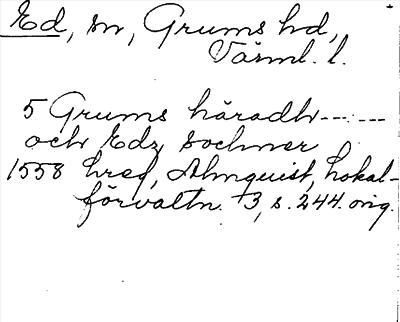 Ed, sn, Grums hd,
Värml. l.
5 Grums häradh-----
och Edz sochner
1558 hreg, Almquist, Lokal-
förvaltn. 3, s. 244. orig.